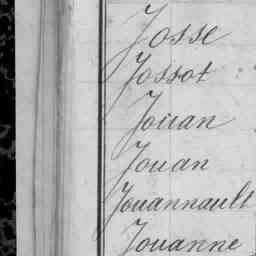 Josse
Jossot
Jouan
Jouan
Jouannault
Jouanne